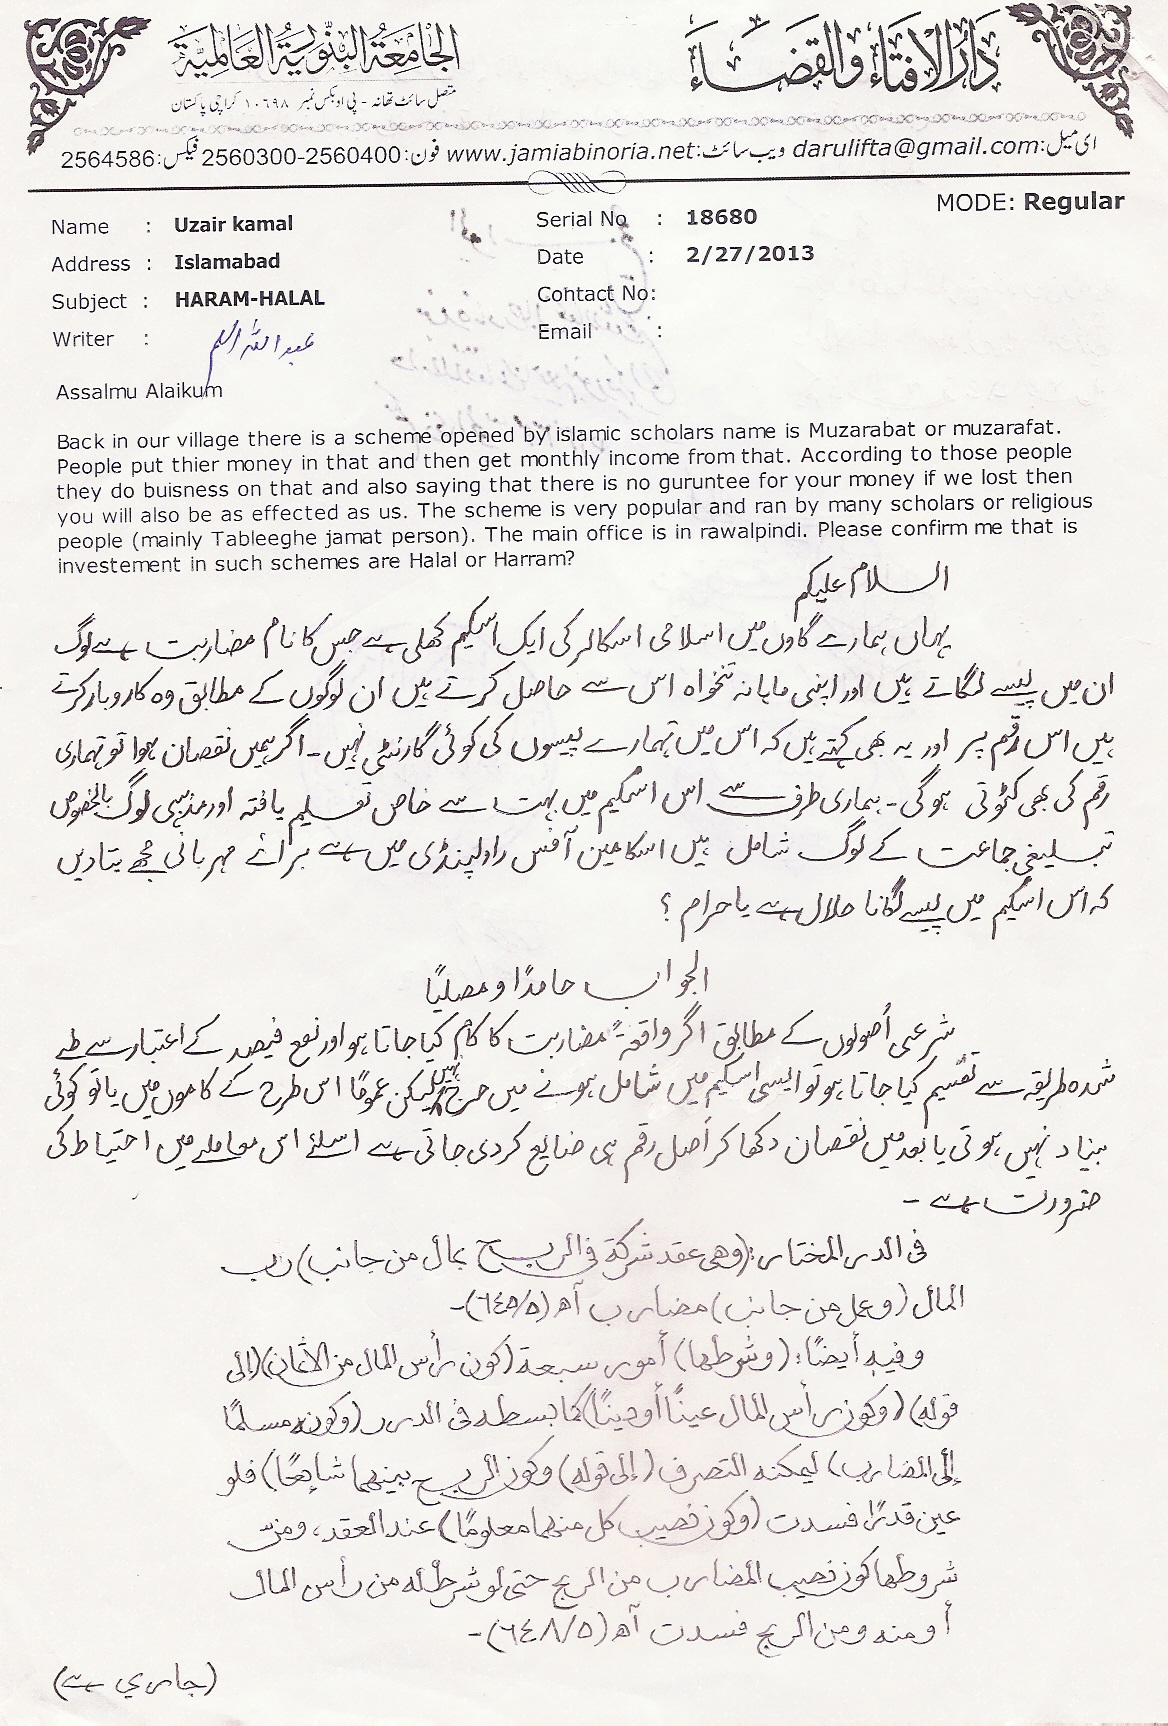 دَارُالإفتَاء وَالقضَاء
الجَامعَةُ البِنّوريَةُ العَالميَّة
متصل سائٹ تھانہ - پی او بکس نمبر ۱۰۶۹۸ کراچی پاکستان
ای میل:darulifta@gmail.com ویب سائٹ:www.jamiabinoria.net فون:2560300-2560400 فیکس:2564586
MODE: Regular
Name : Uzair kamal
Serial No : 18680
Address : Islamabad
Date : 2/27/2013
Subject : HARAM-HALAL
Contact No:
Writer :
Email :
Assalmu Alaikum
Back in our village there is a scheme opened by islamic scholars name is Muzarabat or muzarafat.
People put thier money in that and then get monthly income from that. According to those people
they do buisness on that and also saying that there is no guruntee for your money if we lost then
you will also be as effected as us. The scheme is very popular and ran by many scholars or religious
people (mainly Tableeghe jamat person). The main office is in rawalpindi. Please confirm me that is
investement in such schemes are Halal or Harram?
السلام علیکم
یہاں ہمارے گاوں میں اسلامی اسکالر کی ایک اسکیم کھلی ہے جس کا نام مضاربت ہے لوگ
ان میں پیسے لگاتے ہیں اور اپنی ماہانہ تنخواہ اس سے حاصل کرتے ہیں ان لوگوں کے مطابق وہ کاروبار کرتے
ہیں اس رقم پر اور یہ بھی کہتے ہیں کہ اس میں تمہارے پیسوں کی کوئی گارنٹی نہیں۔ اگر ہمیں نقصان ہوا تو تمہاری
رقم کی بھی کٹوتی ہوگی۔ ہماری طرف سے اس اسکیم میں بہت سے خاص تعلیم یافتہ اور مذہبی لوگ بالخصوص
تبلیغی جماعت کے لوگ شامل ہیں اسکا مین آفس راولپنڈی میں ہے براۓ مہربانی مجھے بتادیں
کہ اس اسکیم میں پیسے لگانا حلال ہے یا حرام ؟
الجواب حامدًا ومصلیًا
شرعی اُصولوں کے مطابق اگر واقعۃً مضاربت کا کام کیا جاتا ہو اور نفع فیصد کے اعتبار سے طے
شدہ طریقہ سے تقسیم کیا جاتا ہو تو ایسی اسکیم میں شامل ہونے میں حرج نہیں لیکن عمومًا اس طرح کے کاموں میں یا تو کوئی
بنیاد نہیں ہوتی یا بعد میں نقصان دکھا کر اصل رقم ہی ضایع کردی جاتی ہے اسلئے اس معاملے میں احتیاط کی
ضرورت ہے ۔
فی الدر المختار: (وهی عقد شركة فی الربح بمال من جانب) رب
المال (وعمل من جانب) مضارب آھ (٥/٦٤٥)۔
وفیه أیضًا: (وشرطها) أمور سبعة (كون رأس المال من الأثمان) (إلی
قوله) (وكون رأس المال عینًا أو دینًا) كما بسطه فی الدرر (وكونه مسلمًا
إلی المضارب) لیمكنه التصرف (إلی قوله) وكون الربح بینهما شائعًا) فلو
عین قدرًا فسدت (وكون نصیب كل منهما معلومًا) عند العقد، ومن
شروطها كون نصیب المضارب من الربح حتی لو شرط له من رأس المال
أو منه ومن الربح فسدت آھ (٥/٦٤٨)۔
(جاری ہے)